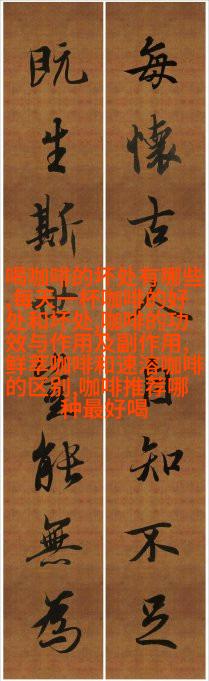 每懷古自知不足
既生斯能無為
喝咖啡的坏处有哪些
,每天一杯咖啡的好
处和坏处,咖啡的功
效与作用及副作用,
鲜萃咖啡和速溶咖啡
的区别,咖啡推荐哪
种最好喝